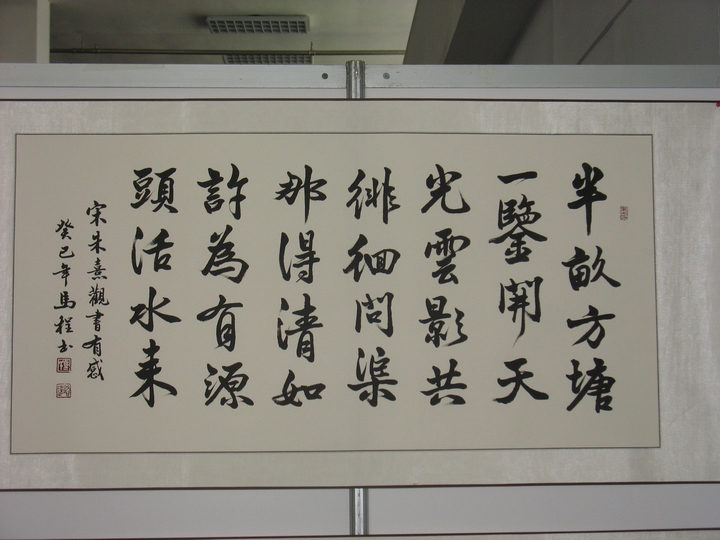 半畝方塘
一鑒開天
光雲影共
徘徊問渠
那得清如
許為有源
頭活水来
宋朱熹觀書有感
癸巳年馬程书